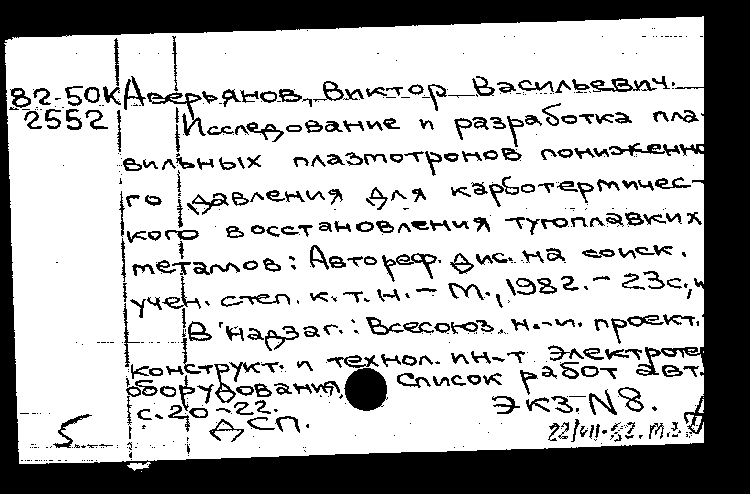 82-50К Аверьянов, Виктор Васильевич.
2552 Исследование и разработка пла-
вильных плазмотронов пониженно
го давления для карботермичес-
кого восстановления тугоплавких
металлов: Автореф. дис. на соиск.
учен. степ. к. т. н. - М., 1982. - 23с.,
В надзаг.: Всесоюз. н.-и. проект.
конструкт. и технол. ин-т электроте
оборудования. Список работ авт.
с. 20-22. Экз. N8.
ДСП.
22/VII-82.